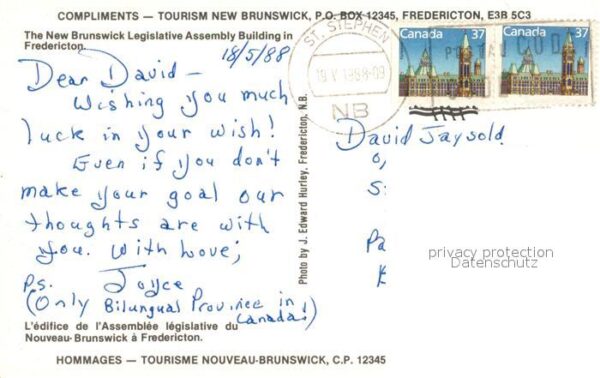 COMPLIMENTS — TOURISM NEW BRUNSWICK, P.O. BOX 12345, FREDERICTON, E3B 5C3
The New Brunswick Legislative Assembly Building in
Fredericton.
18/5/88
Dear David—
Wishing you much
luck in your wish!
Even if you don't
make your goal our
thoughts are with
you. With Love;
Ps. Joyce
(Only Bilungual Province in
Canada!)
L'édifice de l'Assemblée législative du
Nouveau-Brunswick à Fredericton.
HOMMAGES — TOURISME NOUVEAU-BRUNSWICK, C.P. 12345
Photo by J. Edward Hurley, Fredericton, N.B.
ST. STEPHEN
NB
Canada 37
Canada 37
David Jaysold
privacy protection
Datenschutz